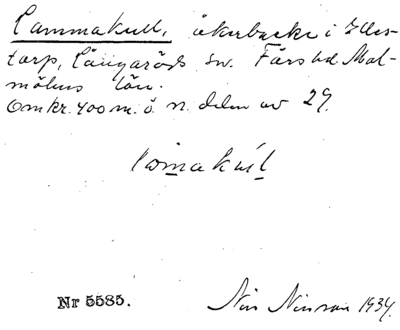 Lammakull, åkerbacke i Illes-
torp, Långaröds sn. Färs hd. Mal-
möhus län.
Omkr. 400 m. ö. n. delen av 29.
lomakul
Nr 5585.
Nils Nilsson 1934.